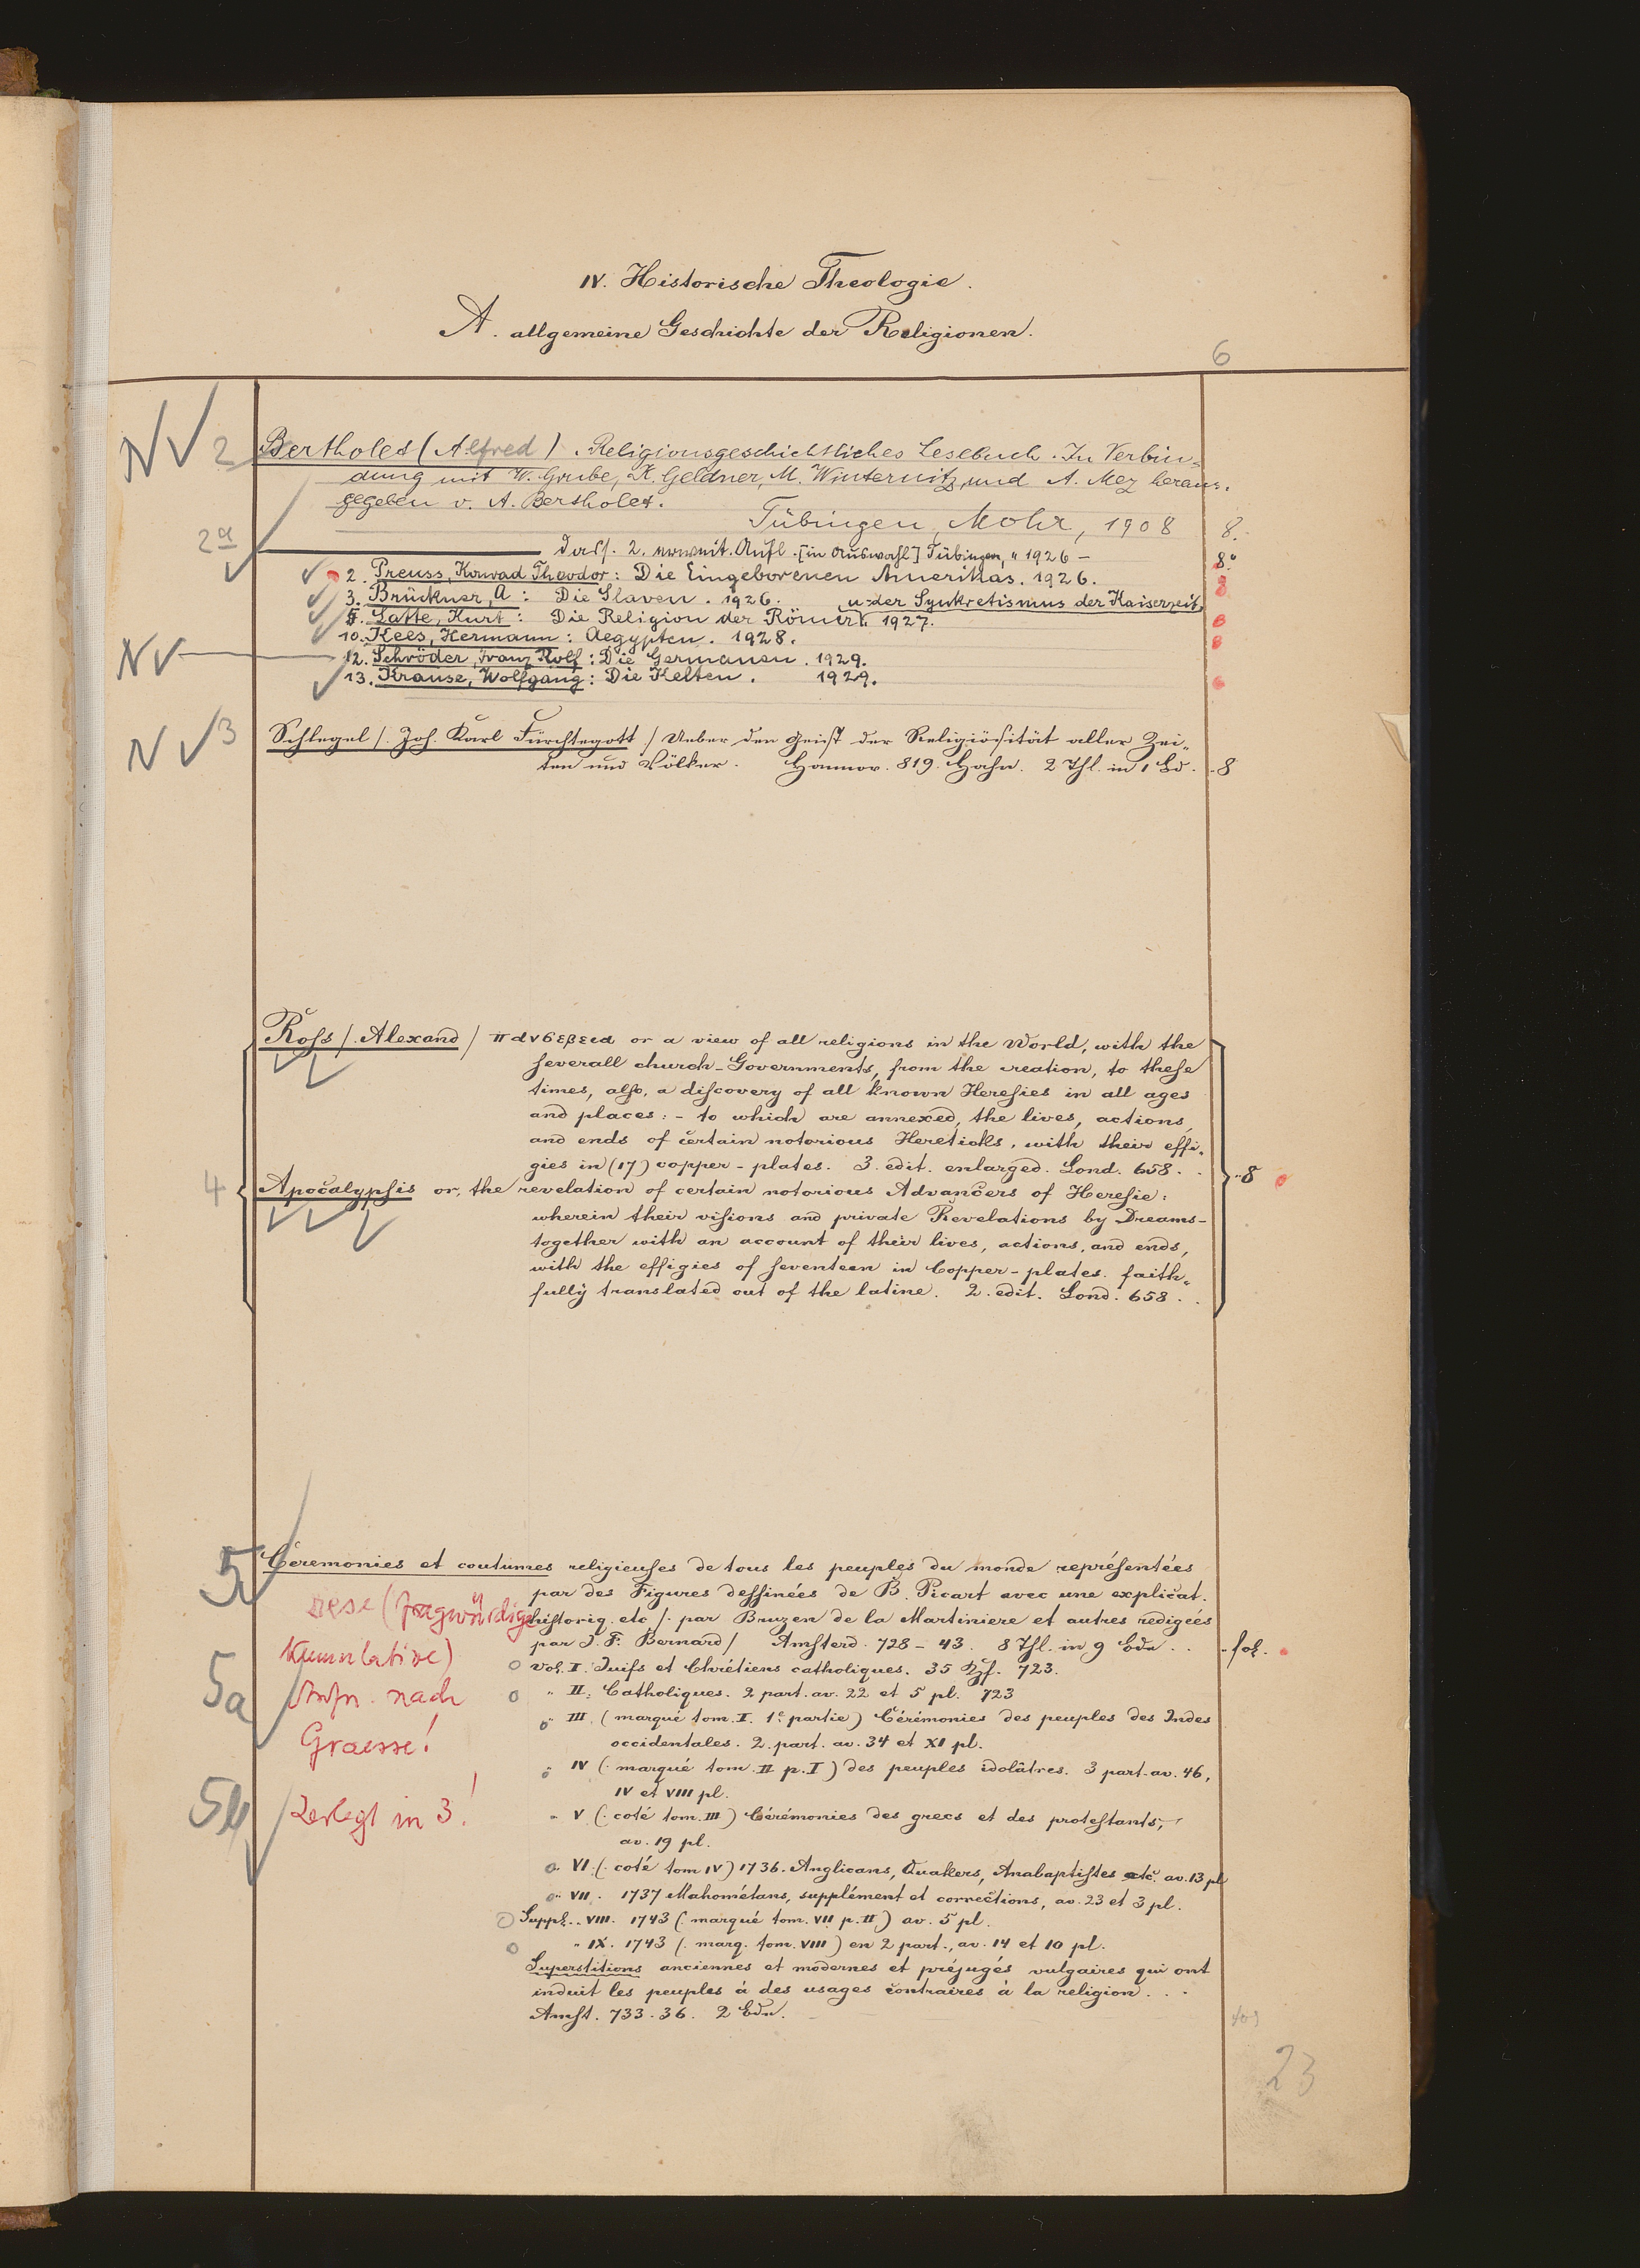 IV. Historische Theologie.
A. allgemeine Geschichte der Religionen.
6
N 2 Bertholet (Alfred). Religionsgeschichtliches Lesebuch. In Verbin-
dung mit W. Grube, K. Geldner, M. Winternitz und A. Mez heraus-
gegeben v. A. Bertholet.
Tübingen, Mohr, 1908 8.
2a dass. 2. erweit. Aufl. [in Auswahl] Tübingen, " 1926 – 8.°
2. Preuss, Konrad Theodor: Die Eingeborenen Amerikas. 1926. 8
3. Brückner, A: Die Slaven. 1926.
u. der Synkretismus der Kaiserzeit,
5. Latte, Kurt: Die Religion der Römer 1927.
10. Kees, Hermann: Aegypten. 1928.
N 12. Schröder, Franz Rolf: Die Germanen. 1929.
13. Krause, Wolfgang: Die Kelten. 1929.
N 3 Schlegel /. Joh. Karl Fürchtegott / Ueber den Geist der Religiösität aller Zei-
ten und Völker. Hannov. 819. Hahn. 2 Thl. in 1 Bd. 8
Roſs /. Alexand / πανσεβεια or a view of all religions in the World, with the
ſeverall church-Governments, from the creation, to theſe
times, alſo, a diſcovery of all known Hereſies in all ages
and places: – to which are annexed, the lives, actions,
and ends of certain notorious Hereticks, with their effi-
gies in (17) copper-plates. 3. edit. enlarged. Lond. 658. .
4 Apocalypſis or, the revelation of certain notorious Advancers of Hereſie: 8
wherein their viſions and private Revelations by Dreams-
together with an account of their lives, actions, and ends,
with the effigies of ſeventeen in Copper-plates. faith-
fully translated out of the latine. 2. edit. Lond. 658. .
5 Cèremonies et coutumes religieuſes de tous les peuples du monde repréſentées
par des Figures deſſinées de B. Picart avec une explicat.
hiſtoriq. etc /. par Bruzen de la Martiniere et autres redigées
par J. F. Bernard / Amſterd. 728 – 43. 8 Thl. in 9 Bdn. . . fol.
(fragwürdige
Kumulative)
Aufn. nach
Graesse!
Zerlegt in 3!
5a
5b
Vol. I. Juifs et Chrétiens catholiques. 35 Kpf. 723.
" II. Catholiques. 2 part. av. 22 et 5 pl. 723
" III. (marqué tom. I. 1e partie) Cérémonies des peuples des Indes
occidentales. 2. part. av. 34 et XI pl.
" IV (. marqué tom. II p. I) des peuples idolâtres. 3 part. av. 46,
IV et VIII pl.
" V (. coté tom. III) Cérémonies des grecs et des proteſtants,
av. 19 pl.
" VI. (. coté tom IV) 1736. Anglicans, Quakers, Anabaptiſtes etc. av. 13 pl
" VII. 1737 Mahométans, supplément et corrections, av. 23 et 3 pl.
Suppl. " VIII. 1743 (. marqué tom. VII p. II) av. 5 pl.
" IX. 1743 (. marq. tom. VIII) en 2 part., av. 14 et 10 pl.
Superstitions anciennes et modernes et préjugés vulgaires qui ont
induit les peuples à des usages contraires à la religion . . .
Amſt. 733. 36. 2 Bdn.
23